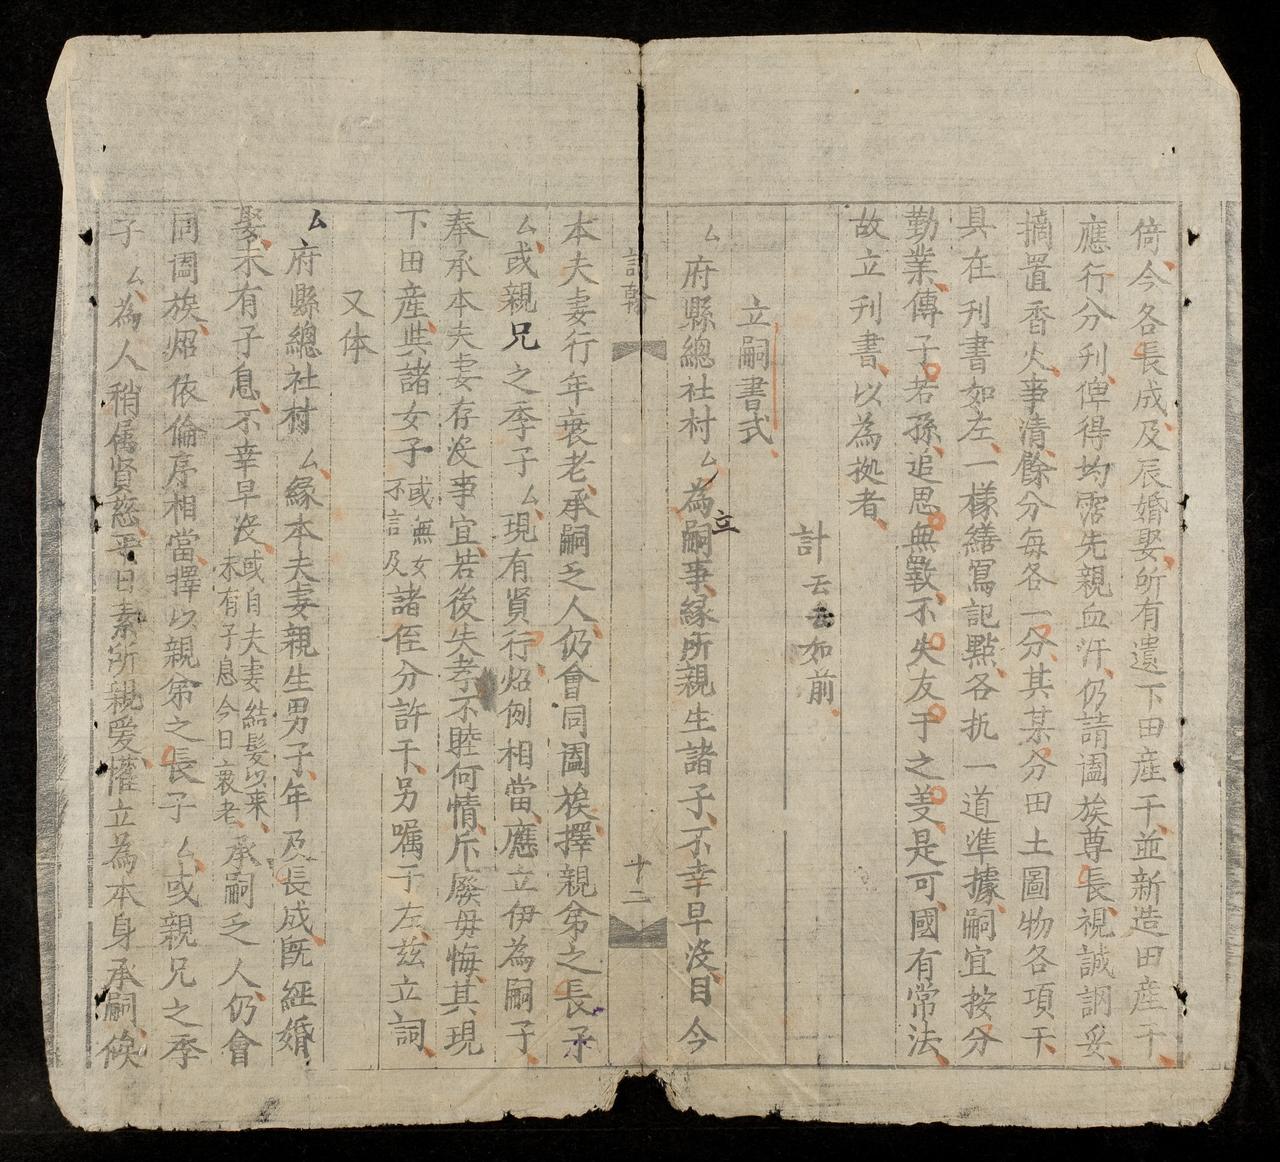 倚今各長成及辰婚娶所有遺下田産干並新造田産干
應行分刋俾得均霑先親血汗仍請闔族尊長視誠詷妥
摘置香火事清餘分每各一分其某分田土圖物各項干
具在刋書如左一樣繕寫記㸃各扸一道準據嗣宜按分
勤業傳子若孫追思無斁不失友于之羙是可國有常法
故立刋書以為拠者
計云云如前
立嗣書式
厶府縣總社村厶為立嗣事緣所親生諸子不幸早沒目今
詞翰
十二
本夫妻行年衰老承嗣乏人仍會同闔族擇親弟之長子
厶或親兄之季子厶現有賢行炤例相當應立伊為嗣子
奉承本夫妻存沒事宜若後失孝不睦何情斥廢毋悔其現
下田産與諸女子或無女不言及諸侄分許干另囑于左玆立詞
又体
厶府縣總社村厶緣本夫妻親生男子年及長成旣經婚
娶未有子息不幸早沒或自夫妻結髮以来未有子息今日衰老承嗣乏人仍會
同闔族炤依倫序相當擇以親弟之長子厶或親兄之季
子厶為人稍属賢慈平日素所親愛權立為本身承嗣俟